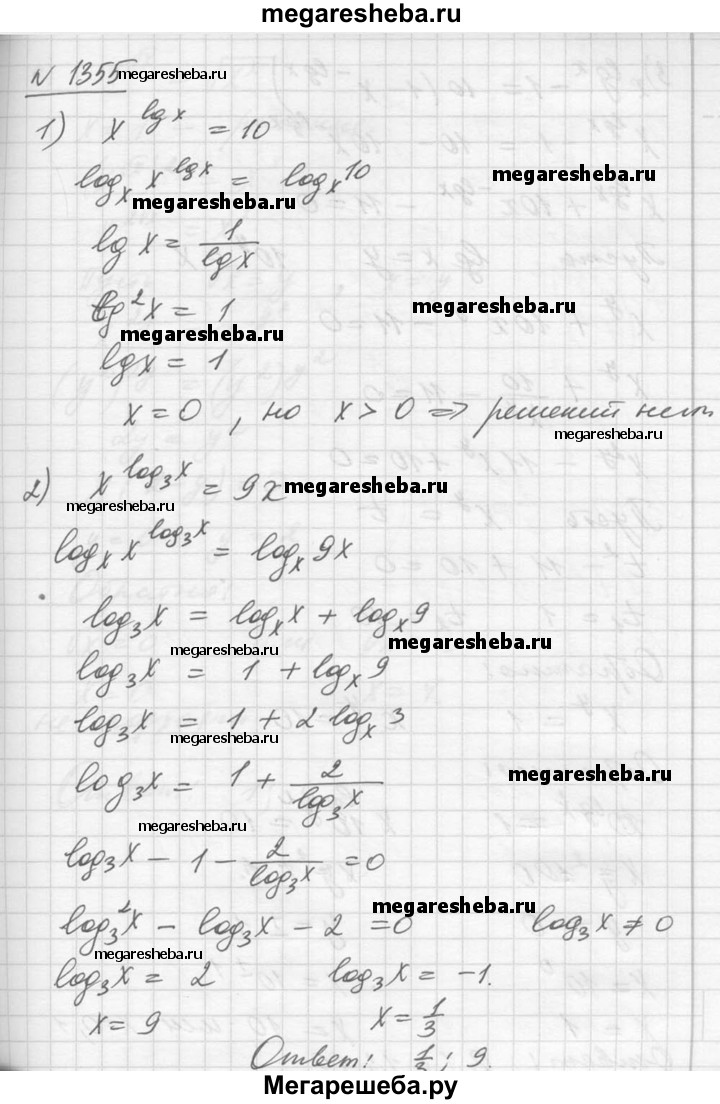 megaresheba.ru
N 1355 megaresheba.ru
1) x^{lg x} = 10
log_x x^{lg x} = log_x 10
megaresheba.ru
megaresheba.ru
lg x = 1/lg x
lg²x = 1
megaresheba.ru
megaresheba.ru
lg x = 1
x = 0, но x > 0 => решений нет
megaresheba.ru
2) x^{log₃x} = 9x
megaresheba.ru
megaresheba.ru
log_x x^{log₃x} = log_x 9x
log₃x = log_x x + log_x 9
megaresheba.ru
megaresheba.ru
log₃x = 1 + log_x 9
log₃x = 1 + 2 log_x 3
megaresheba.ru
log₃x = 1 + 2/log₃x
megaresheba.ru
megaresheba.ru
log₃x - 1 - 2/log₃x = 0
megaresheba.ru
log₃²x - log₃x - 2 = 0 log₃x ≠ 0
megaresheba.ru
log₃x = 2 log₃x = -1.
x = 9 x = 1/3
Ответ: 1/3; 9.
Мегарешеба.ру